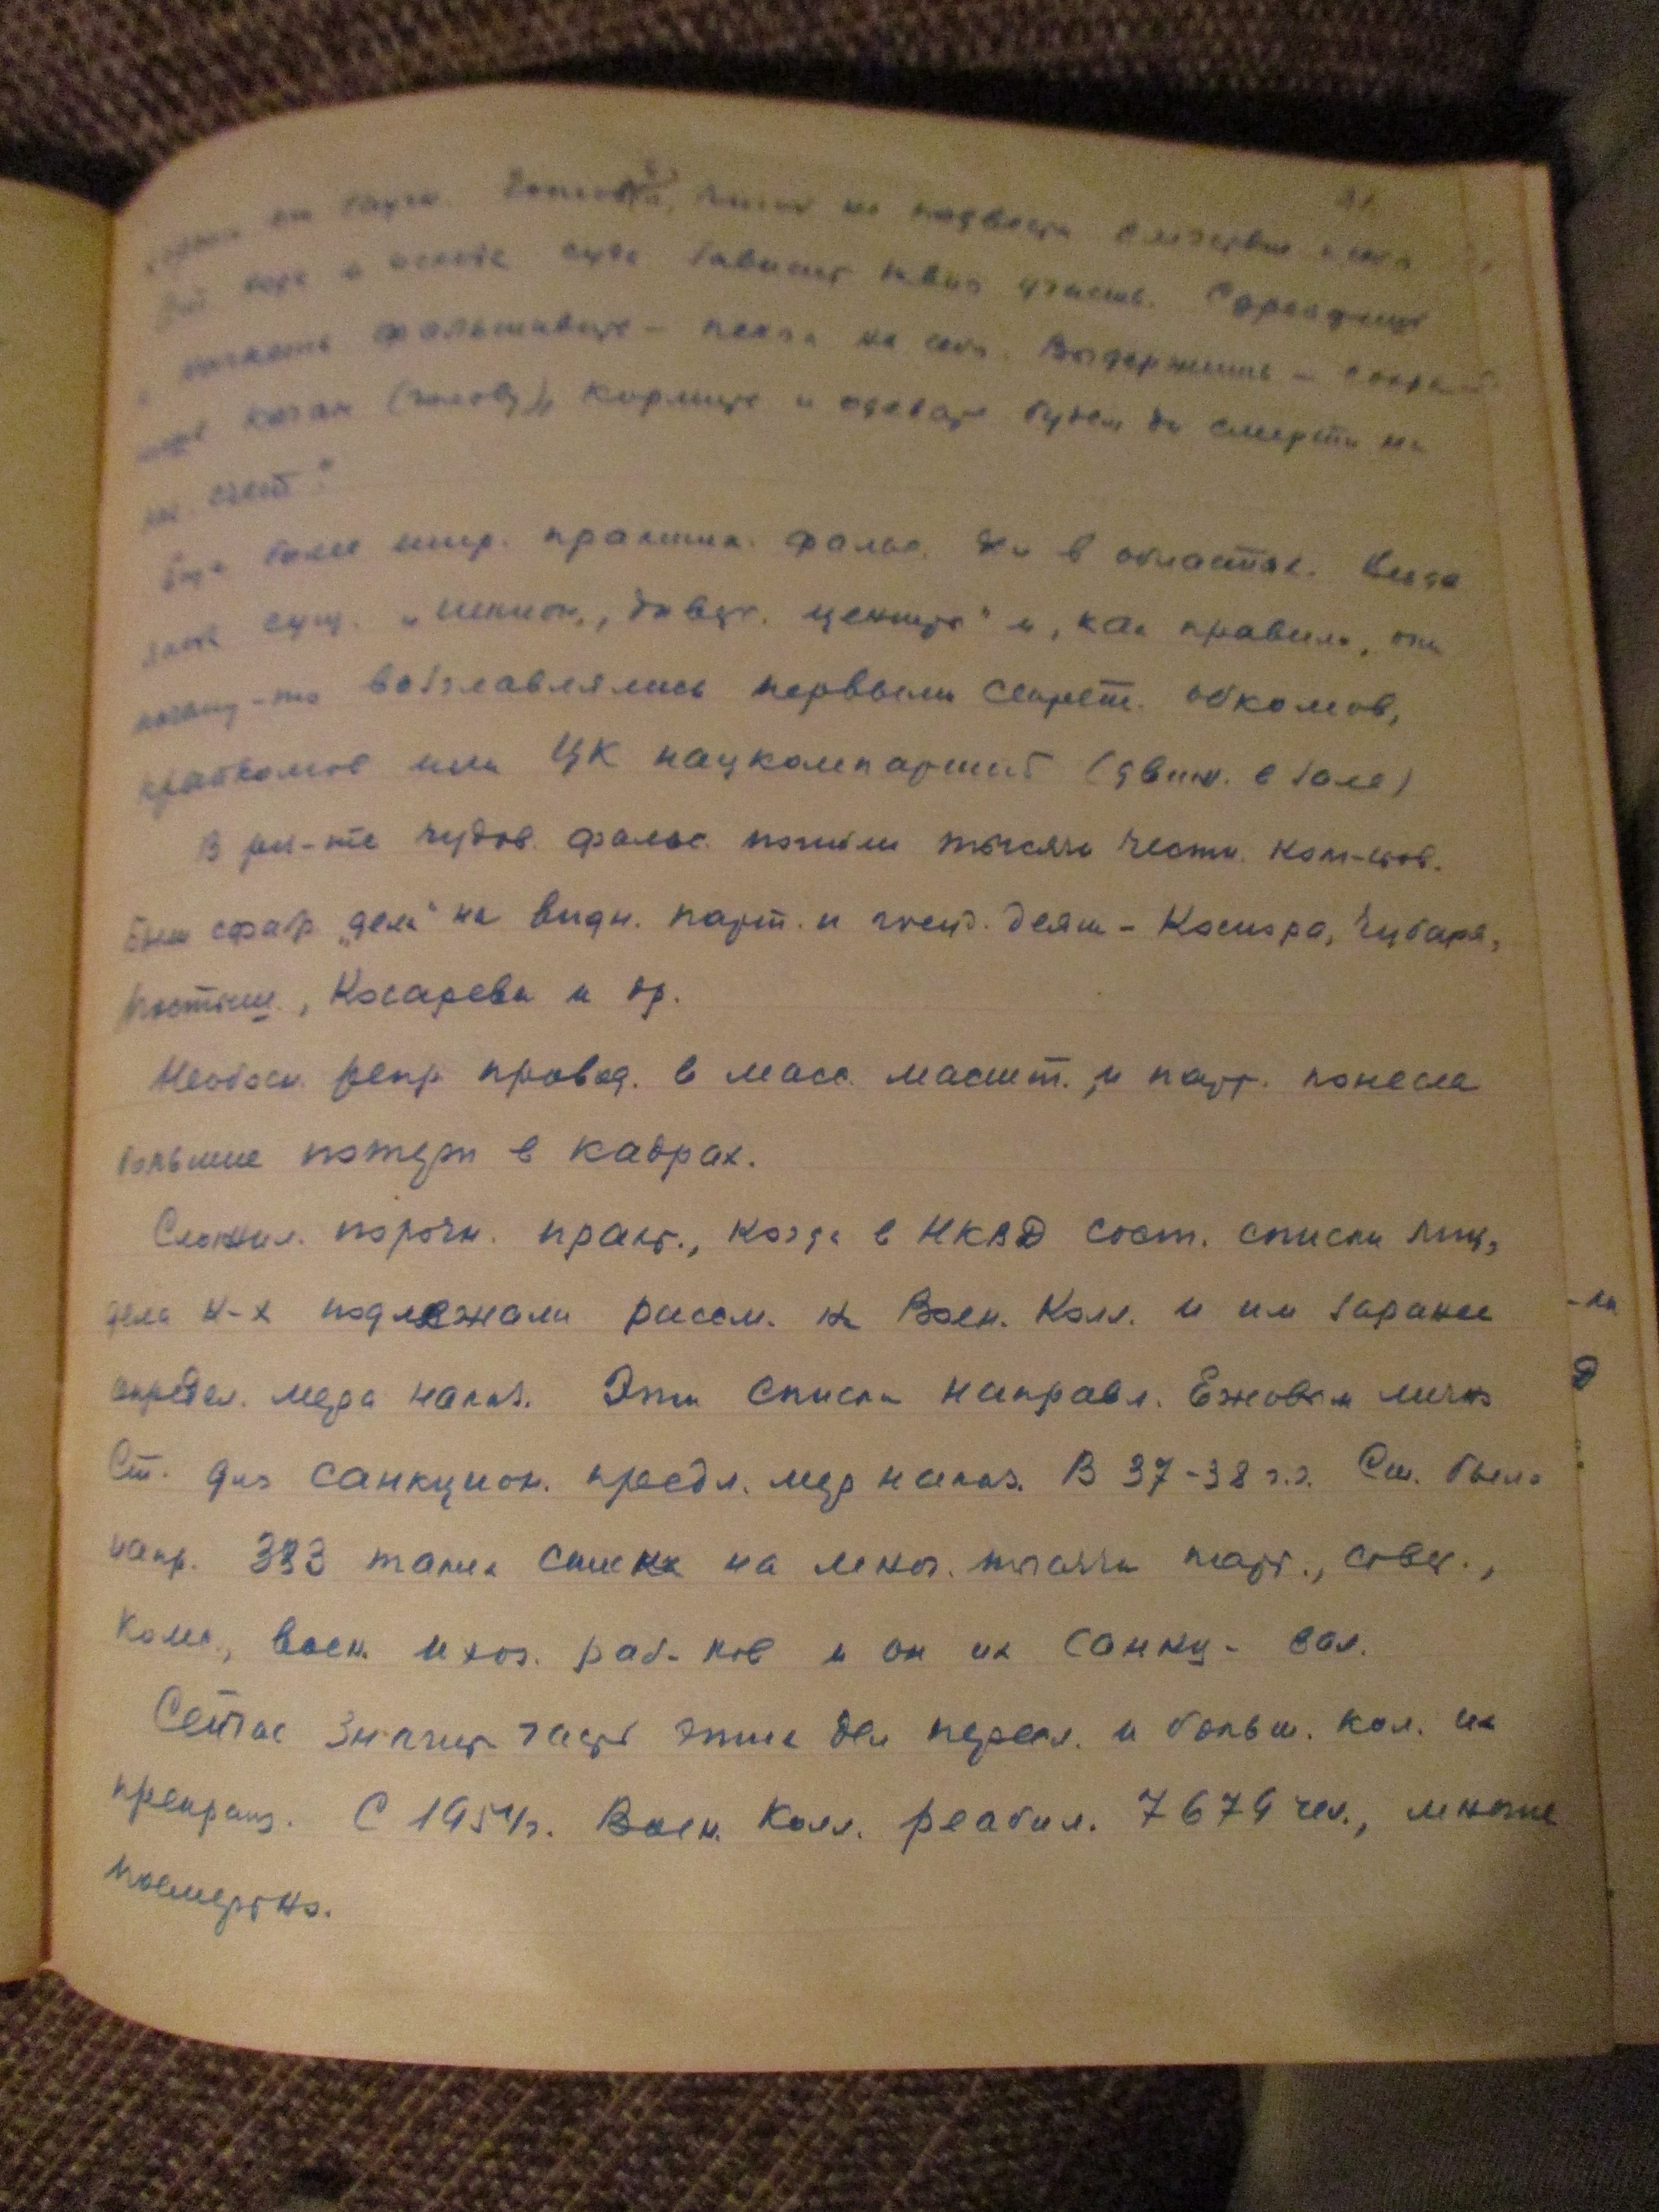 31
от суда. Готовься, чтоб не подвести следствие и себя.
От хода и исхода суда зависит твоя участь. Сдрейфишь
и начнешь фальшивить – пеняй на себя. Выдержишь – сохра-
кочан (голову), кормить и одевать будем до смерти на
счет".
Еще более шир. практик. фальс. дел в областях. Везде
сущ. "шпион., диверс. центры" и, как правило, они
почему-то возглавлялись первыми секрет. обкомов,
крайкомов или ЦК нацкомпартий (движ. в зале)
В рез-те чудов. фальс. погибли тысячи честн. ком-тов.
Были сфабр. "дела" на видн. парт. и госуд. деят – Косиора, Чубаря,
Постыш., Косарева и др.
Необосн. репр. провод. в масс. масшт., и парт. понесла
большие потери в кадрах.
Сложил. порочн. практ., когда в НКВД сост. списки лиц,
дела к-х подлежали рассм. на Воен. Колл. и им заранее
определ. мера наказ. Эти списки направл. Ежовым лично
Ст. для санкцион. предл. мер наказ. В 37-38 г.г. Ст. было
напр. 383 таких списка на мног. тысячи парт., совет.,
комс., воен. и хоз. раб-ков и он их санкц-вал.
Сейчас значит часть этих дел пересм. и больш. кол. их
прекращ. С 1954 г. Воен. Колл. реабил. 7679 чел., многие
посмертно.